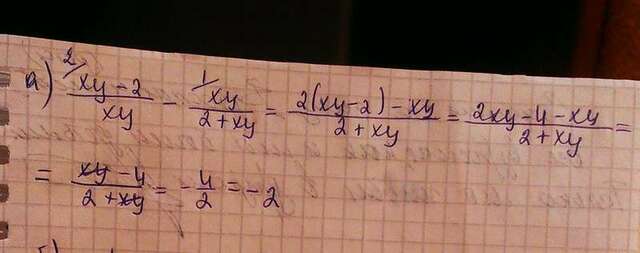 а) ²/ xy - 2 / xy - ¹/ xy / 2 + xy = 2(xy-2) - xy / 2 + xy = 2xy - 4 - xy / 2 + xy =
= xy - 4 / 2 + xy = - 4 / 2 = -2